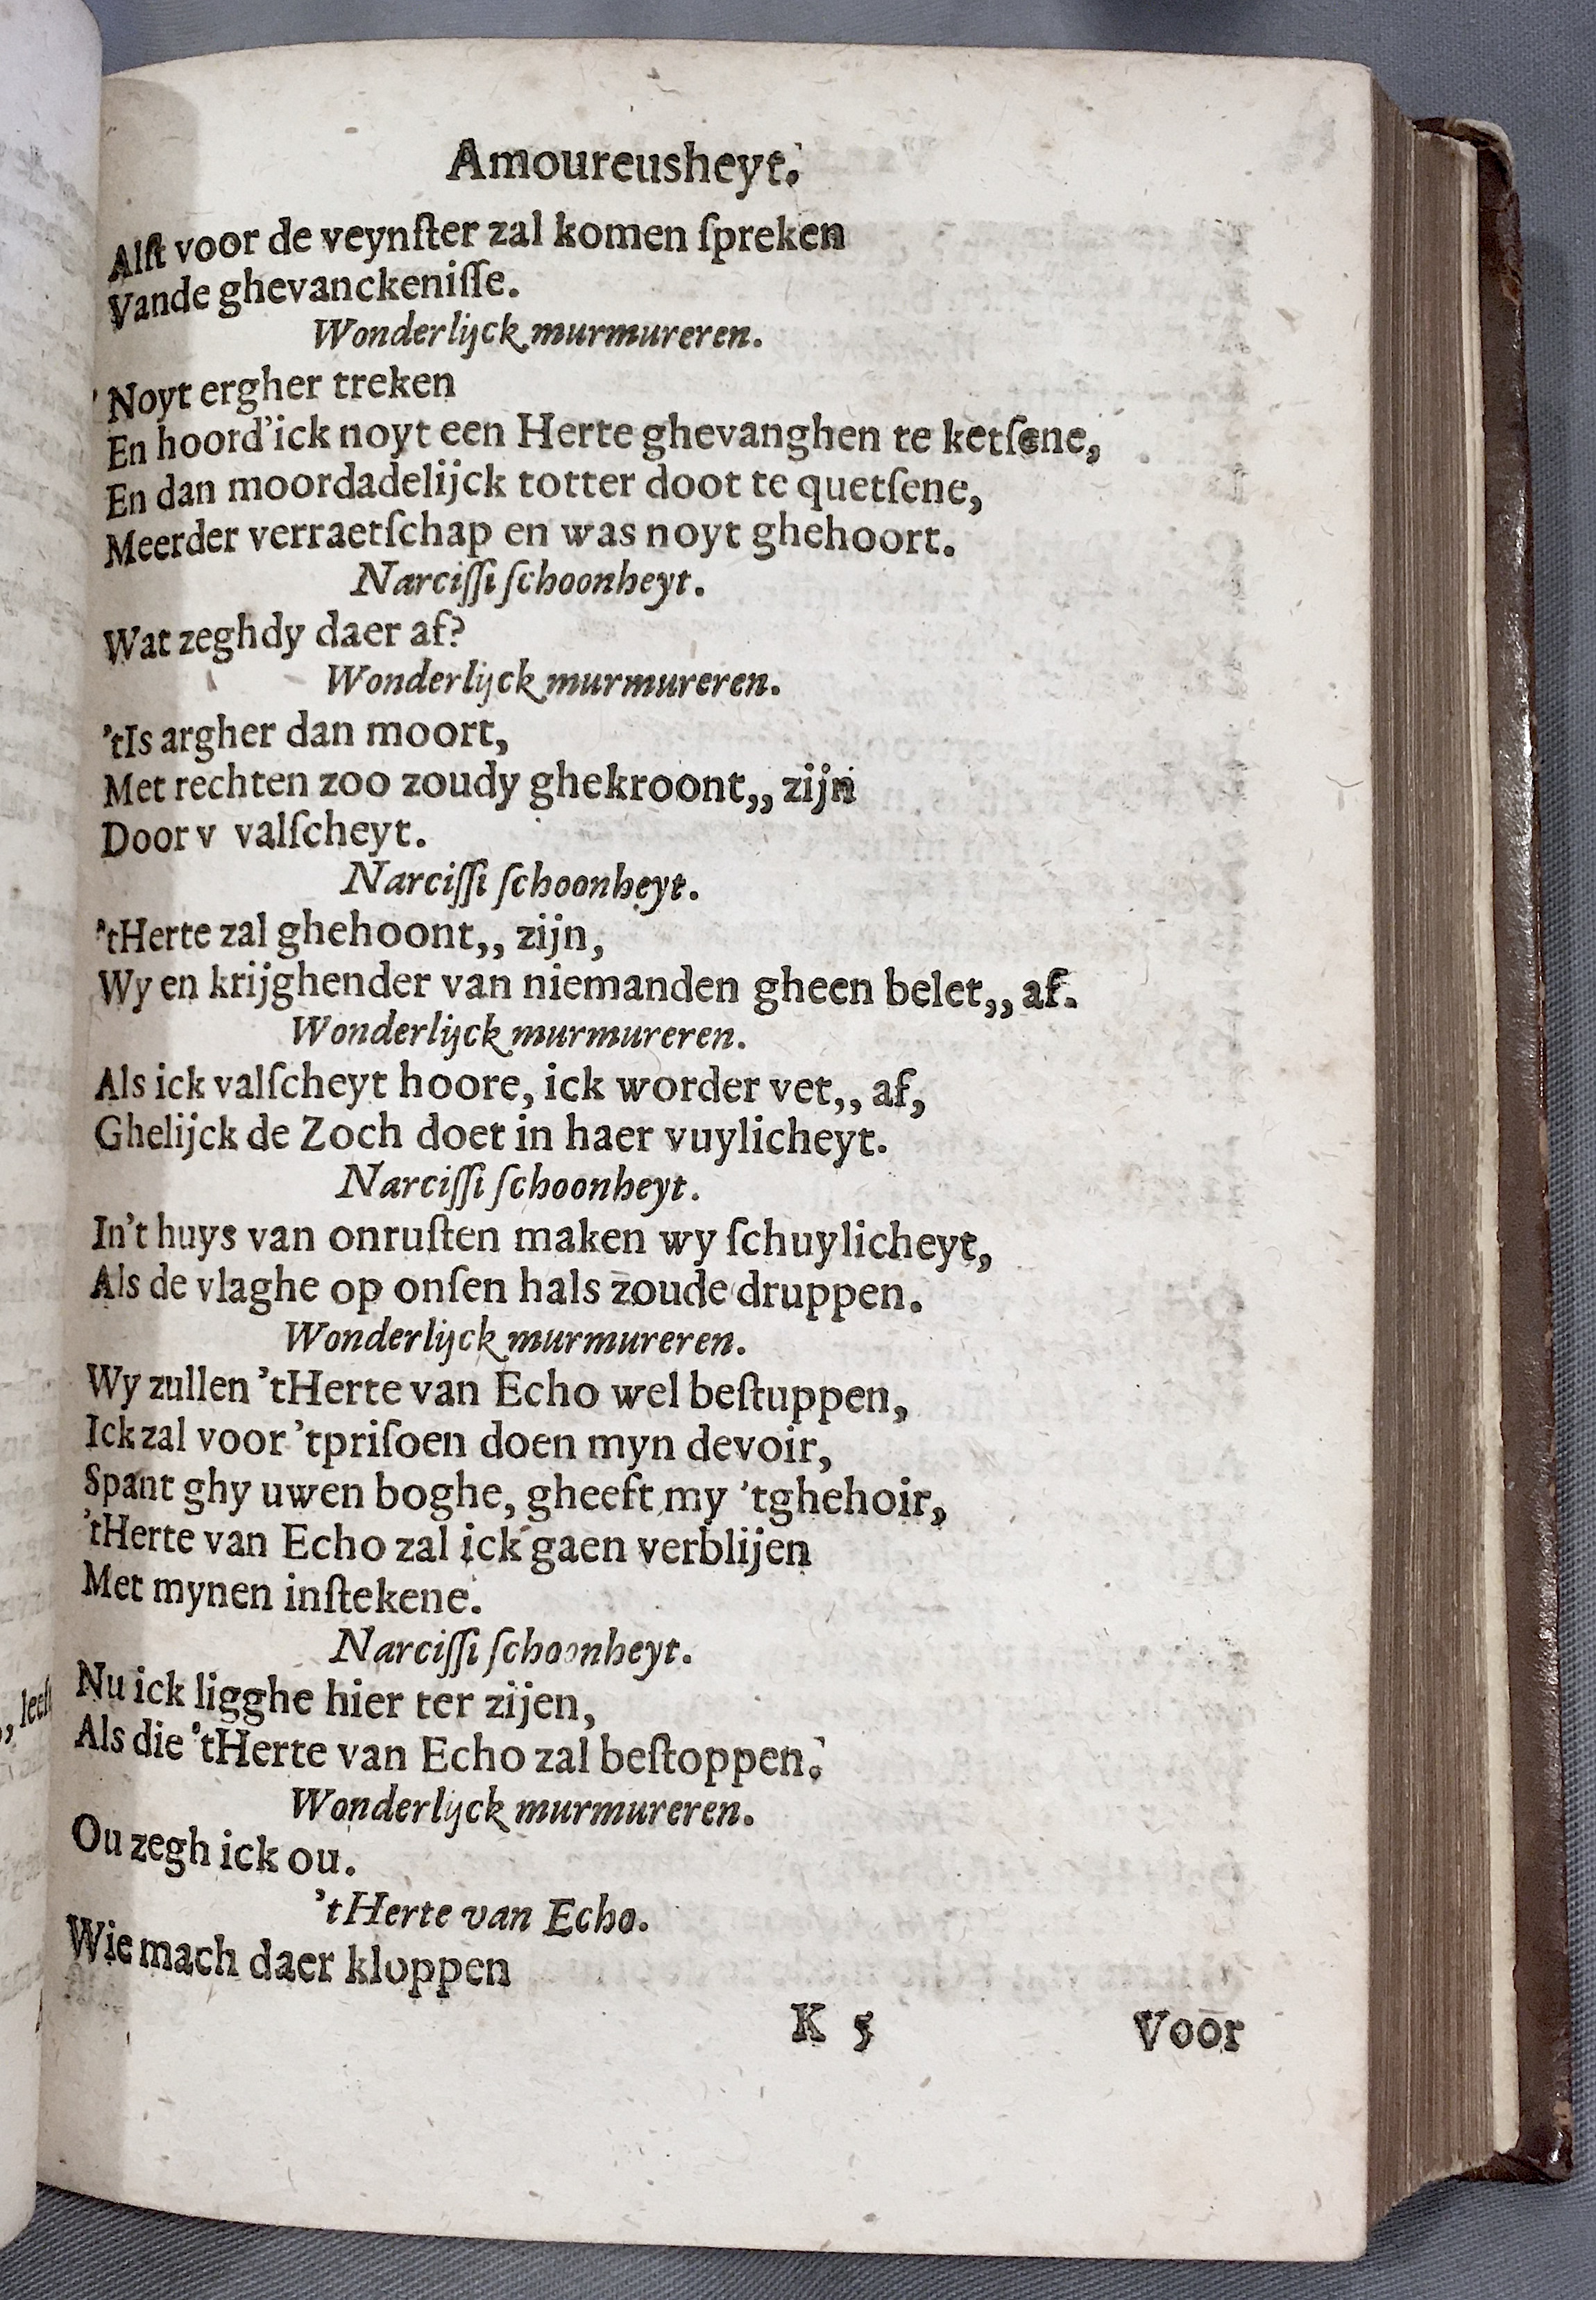 Amoureusheyt.
Alſt voor de veynſter zal komen ſpreken
Vande ghevanckeniſſe.
Wonderlijck murmureren.
'Noyt ergher treken
En hoord'ick noyt een Herte ghevanghen te ketſene,
En dan moordadelijck totter doot te quetſene,
Meerder verraetſchap en was noyt ghehoort.
Narciſſi ſchoonheyt.
Wat zeghdy daer af?
Wonderlijck murmureren.
'tIs argher dan moort,
Met rechten zoo zoudy ghekroont,, zijn
Door v valſcheyt.
Narciſſi ſchoonheyt.
'tHerte zal ghehoont,, zijn,
Wy en krijghender van niemanden gheen belet,, af.
Wonderlijck murmureren.
Als ick valſcheyt hoore, ick worder vet,, af,
Ghelijck de Zoch doet in haer vuylicheyt.
Narciſſi ſchoonheyt.
In't huys van onruſten maken wy ſchuylicheyt,
Als de vlaghe op onſen hals zoude druppen.
Wonderlijck murmureren.
Wy zullen 'tHerte van Echo wel beſtuppen,
Ick zal voor 'tpriſoen doen myn devoir,
Spant ghy uwen boghe, gheeft my 'tghehoir,
'tHerte van Echo zal ick gaen verblijen
Met mynen inſtekene.
Narciſſi ſchoonheyt.
Nu ick ligghe hier ter zijen,
Als die 'tHerte van Echo zal beſtoppen.
Wonderlijck murmureren.
Ou zegh ick ou.
'tHerte van Echo.
Wie mach daer kloppen
K 5 Voor